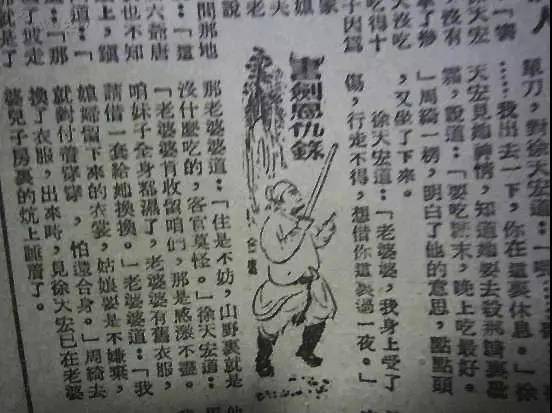 徐天宏
沒有
沒吃
吃得十
子因為
說
間那地
六爺唐
也不知
道：「
「那
那就是了
單刀，對徐天宏道：「
…我出去一下，你在這裏休息。」徐
天宏見她神情，知道她要去殺那
霜，說道：「要吃糖末，晚上吃最好。
」周綺一楞，明白了他的意思，點點頭
，又坐了下來。
徐天宏道：「老婆婆，我身上受了
傷，行走不得，想借你這裏過一夜。」
書劍恩仇錄
金庸
那老婆婆道：「住是不妨，山野裏就是
沒什麼吃的，客官莫怪。」徐天宏道：
「老婆婆肯收留咱們，那是感激不盡。
咱妹子全身都濕了，老婆婆有舊衣服，
請借一套給她換換。」老婆婆道：「我
媳婦留下來的衣裳，姑娘要是不嫌棄，
就對付着穿穿，怕還合身。」周綺去
換了衣服，出來時，見徐天宏已在老婆
婆兒子房裏的炕上睡着了。